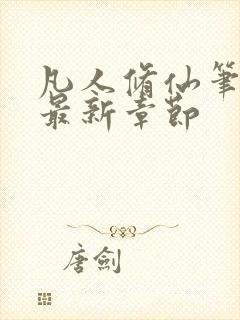 凡人脩仙筆
最新章節
唐劍